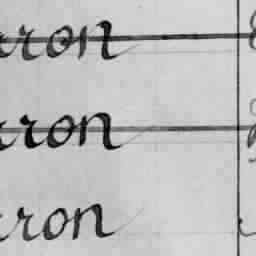 rron
rron
rron